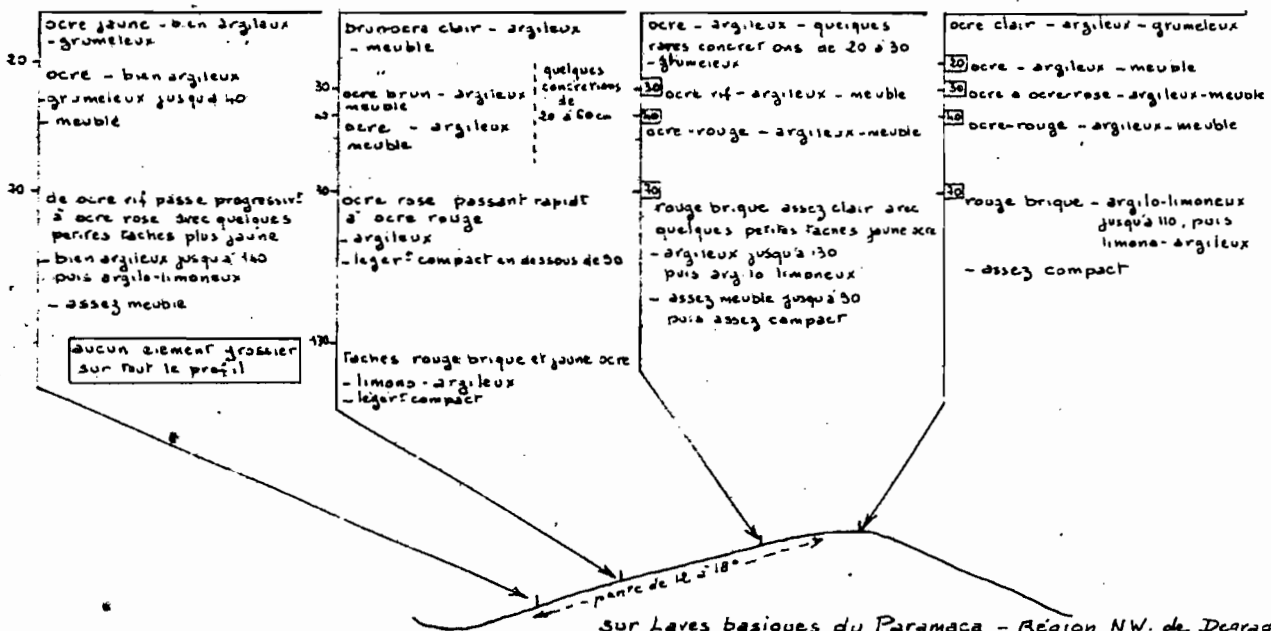 ocre jaune - bien argileux
- grumeleux
20
ocre - bien argileux
- grumeleux jusqu'à 40
- meuble
70
de ocre vif passe progressivt
à ocre rose avec quelques
petites taches plus jaune
- bien argileux jusqu'à 140
puis argilo-limoneux
- assez meuble
aucun element grossier
sur tout le profil
brun ocre clair - argileux
- meuble
quelques
concretions
de
20 à 60 cm
30
ocre brun - argileux
meuble
40
ocre - argileux
meuble
70
ocre rose passant rapidt
à ocre rouge
- argileux
- légert compact en dessous de 90
130
taches rouge brique et jaune ocre
- limono-argileux
- légert compact
ocre - argileux - quelques
rares concretions de 20 à 30
- grumeleux
30
ocre vif - argileux - meuble
40
ocre-rouge - argileux - meuble
70
rouge brique assez clair avec
quelques petites taches jaune ocre
- argileux jusqu'à 130
puis argilo limoneux
- assez meuble jusqu'à 90
puis assez compact
ocre clair - argileux - grumeleux
20
ocre - argileux - meuble
30
ocre à ocre rose - argileux - meuble
40
ocre-rouge - argileux - meuble
70
rouge brique - argilo-limoneux
jusqu'à 110, puis
limono-argileux
- assez compact
pente de 12 à 18°
sur Laves basiques du Paramaca - Région NW. de Degrad